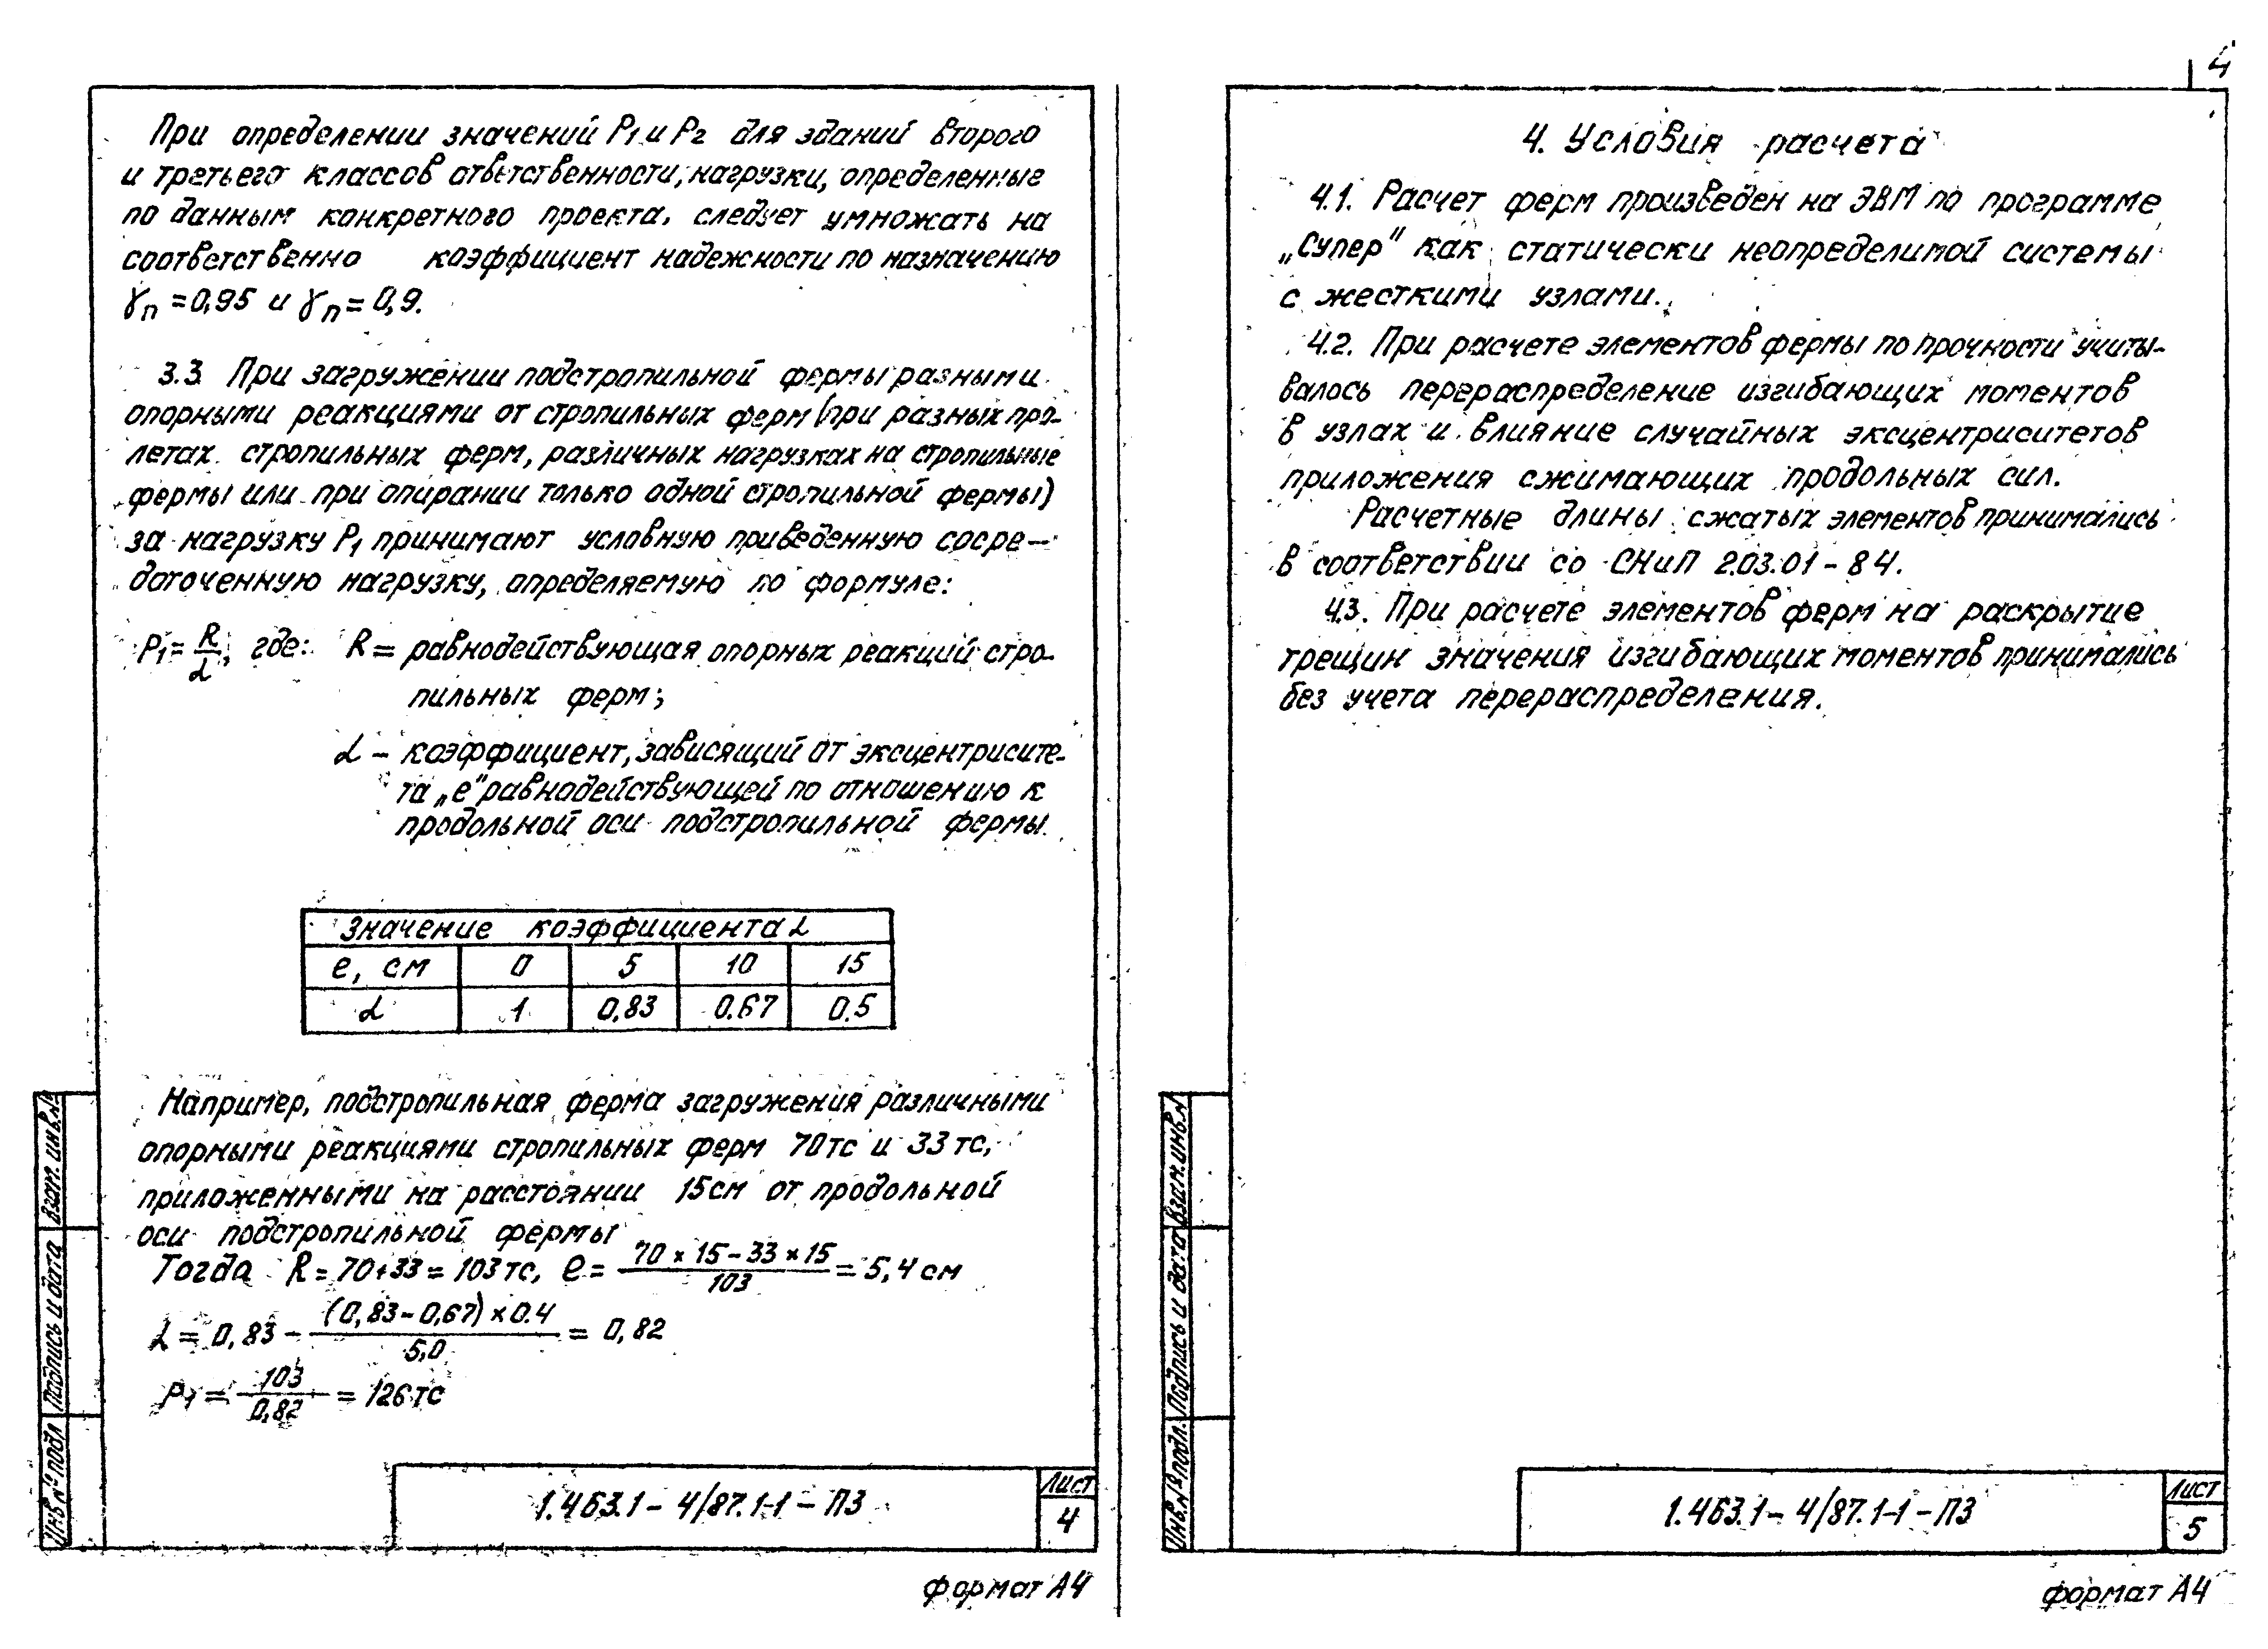 При определении значений P1 и P2 для зданий второго
и третьего классов ответственности, нагрузки, определенные
по данным конкретного проекта, следует умножать на
соответственно коэффициент надежности по назначению
γn = 0,95 и γn = 0,9.
3.3. При загружении подстропильной фермы разными
опорными реакциями от стропильных ферм (при разных про-
летах стропильных ферм, различных нагрузках на стропильные
фермы или при опирании только одной стропильной фермы)
за нагрузку P1 принимают условную приведенную сосре-
доточенную нагрузку, определяемую по формуле:
P1 = R/α, где: R = равнодействующая опорных реакций стро-
пильных ферм;
α – коэффициент, зависящий от эксцентрисите-
та „е" равнодействующей по отношению к
продольной оси подстропильной фермы.
Значение коэффициента α
е, см 0 5 10 15
α 1 0,83 0,67 0,5
Например, подстропильная ферма загружения различными
опорными реакциями стропильных ферм 70 тс и 33 тс,
приложенными на расстоянии 15 см от продольной
оси подстропильной фермы
Тогда R = 70+33 = 103 тс, е = (70 × 15 – 33 × 15)/103 = 5,4 см
α = 0,83 – (0,83 – 0,67) × 0,4/5,0 = 0,82
P1 = 103/0,82 = 126 тс
Взам. инв. №
Подпись и дата
Инв. № подл
1.463.1 – 4/87.1-1 – ПЗ
Лист
4
Формат А4
4
4. Условия расчета
4.1. Расчет ферм произведен на ЭВМ по программе
„Супер" как статически неопределимой системы
с жесткими узлами.
4.2. При расчете элементов фермы по прочности учиты-
валось перераспределение изгибающих моментов
в узлах и влияние случайных эксцентриситетов
приложения сжимающих продольных сил.
Расчетные длины сжатых элементов принимались
в соответствии со СНиП 2.03.01 – 84.
4.3. При расчете элементов ферм на раскрытие
трещин значения изгибающих моментов принимались
без учета перераспределения.
Взам. инв. №
Подпись и дата
Инв. № подл.
1.463.1 – 4/87.1-1 – ПЗ
Лист
5
Формат А4